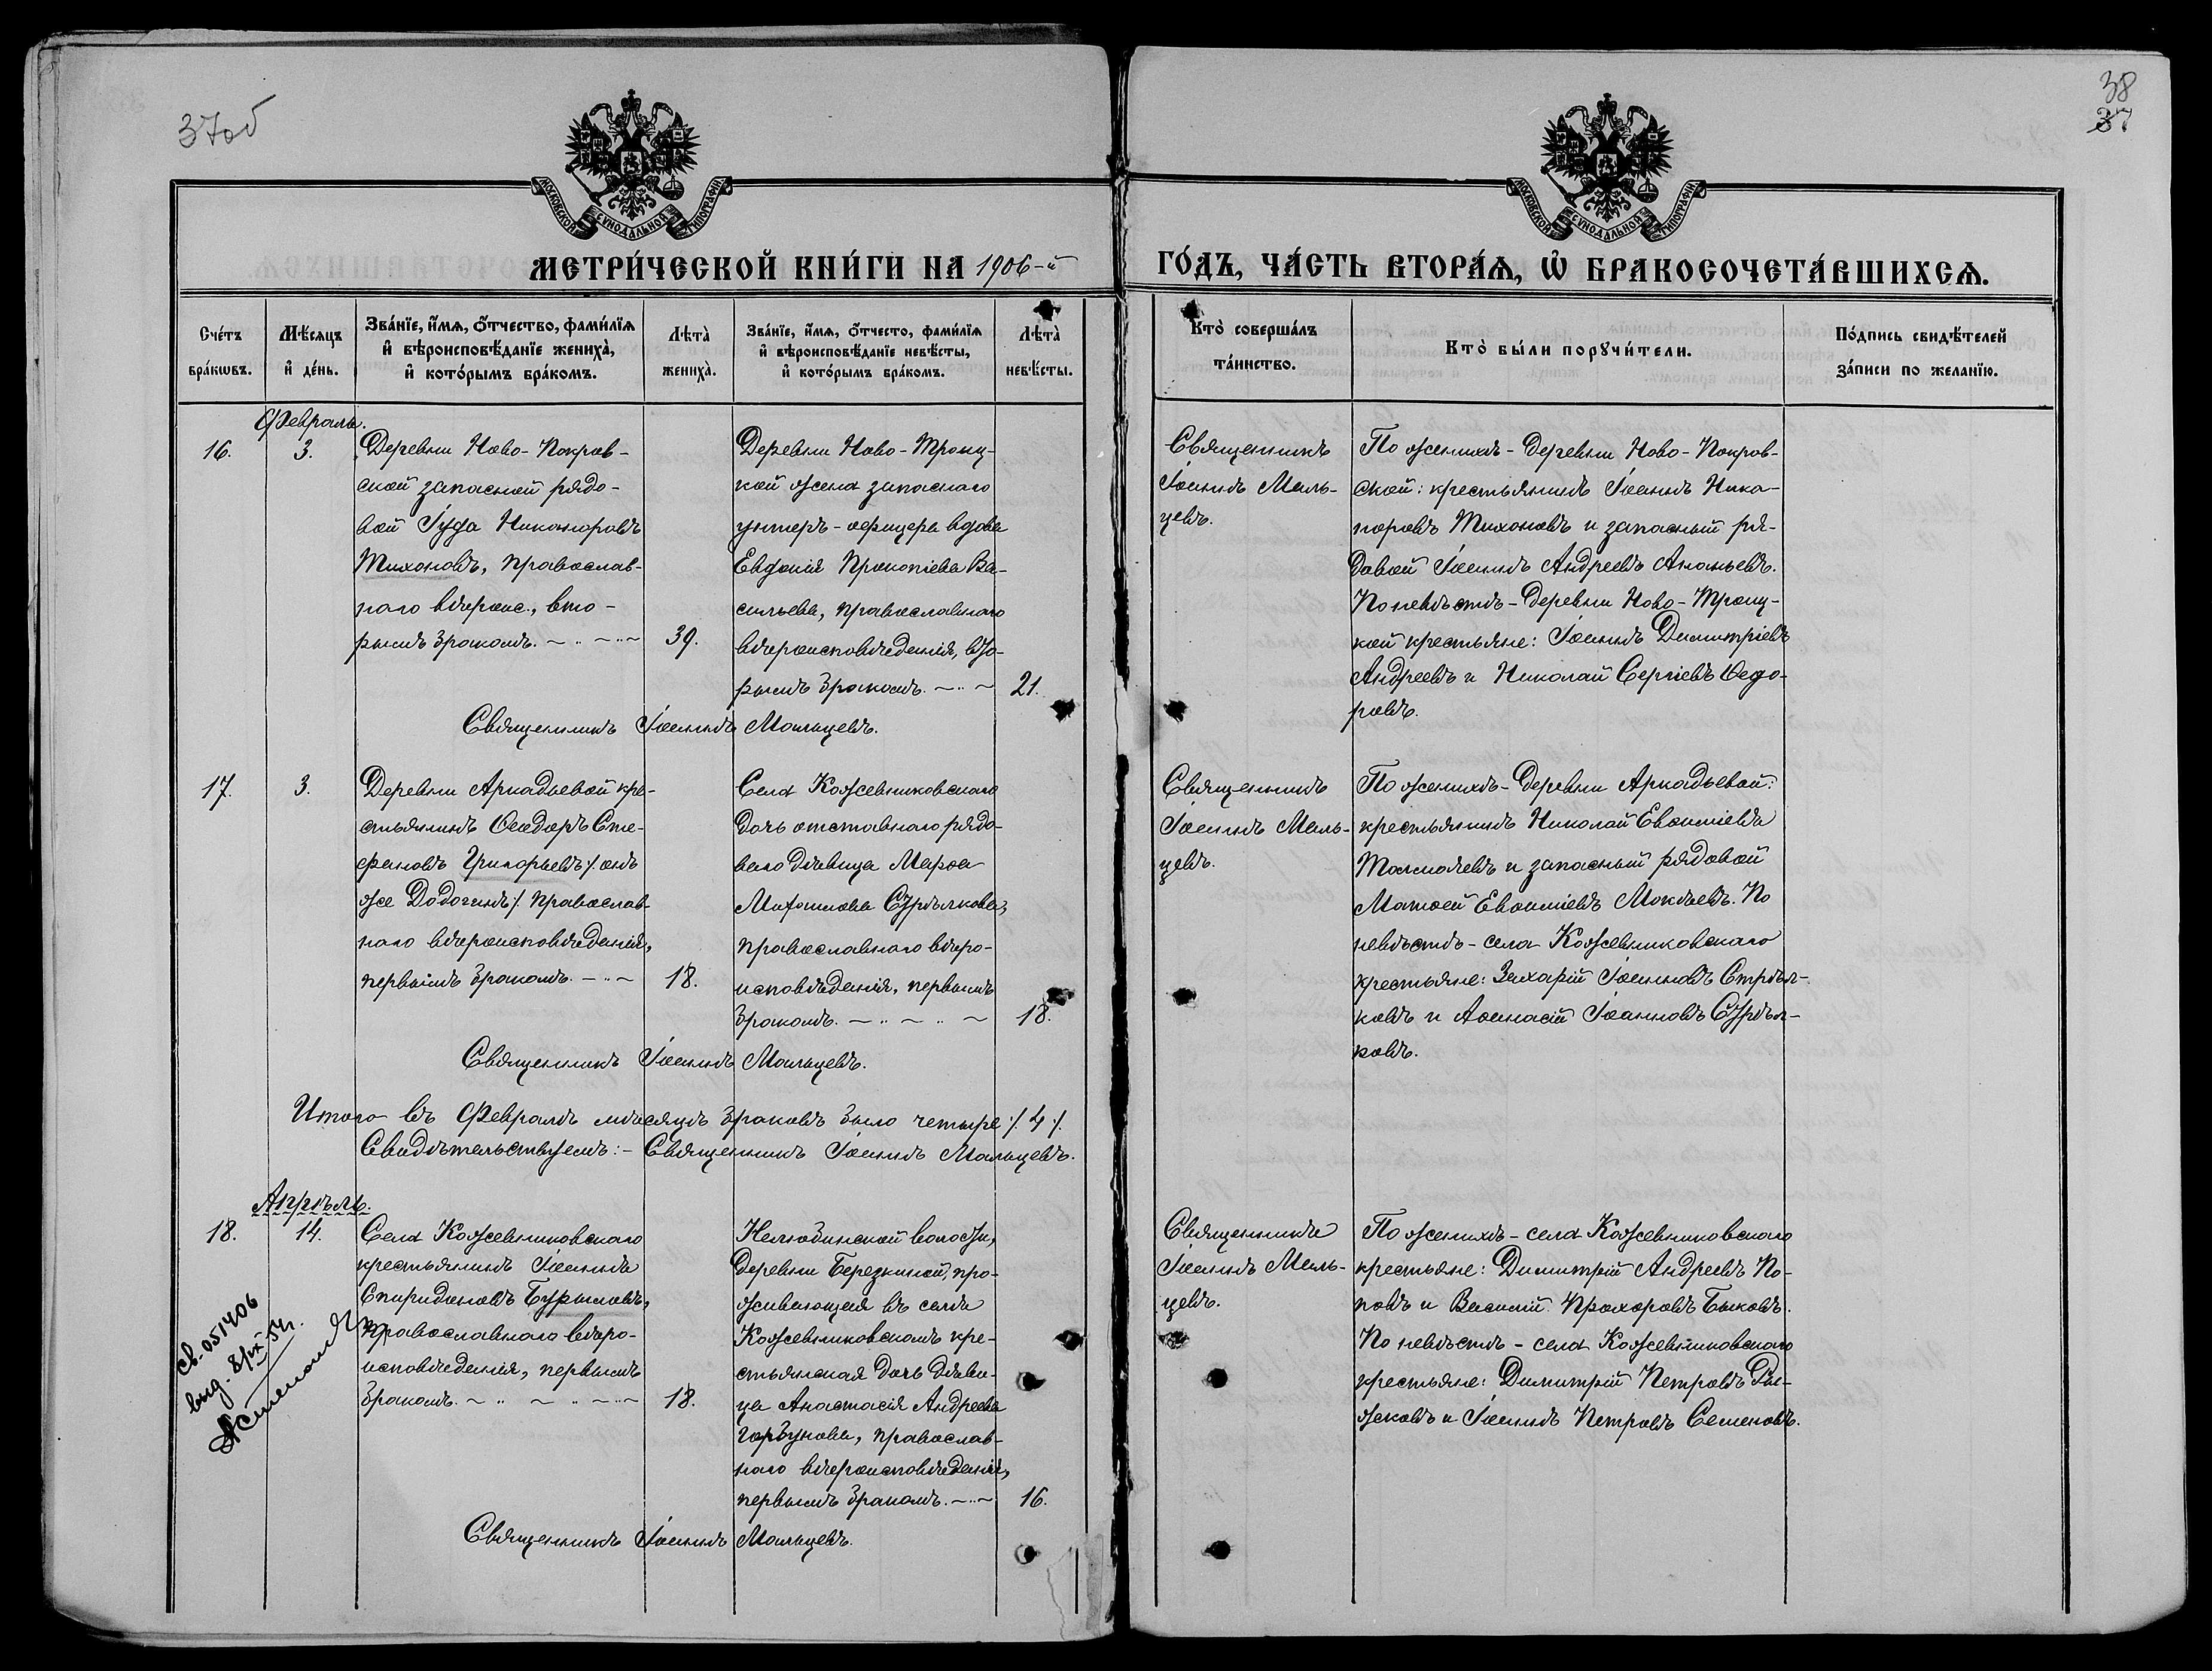 37об
38
37
МОСКОВСКОЙ СѴНОДАЛЬНОЙ ТИПОГРАФІИ
МОСКОВСКОЙ СѴНОДАЛЬНОЙ ТИПОГРАФІИ
МЕТРИ́ЧЕСКОЙ КНИ́ГИ НА 1906-й
ГО́ДЪ, ЧА́СТЬ ВТОРА́Ѧ, Ѡ҆ БРАКОСОЧЕТА́ВШИХСѦ.
Сче́тъ
бра́кѡвъ.
Мѣ́сяцъ
и҆ де́нь.
Зва́нїе, и҆́мѧ, ѻ҆́тчество, фами́лїѧ
и҆ вѣроисповѣ́данїе жениха̀,
и҆ кото́рымъ бра́комъ.
Лѣта̀
жениха̀.
Зва́нїе, и҆́мѧ, ѻ҆́тчесто, фами́лїѧ
и҆ вѣроисповѣ́данїе невѣ́сты,
и҆ кото́рымъ бра́комъ.
Лѣта̀
невѣ́сты.
Кто̀ соверша́лъ
та́инство.
Кто̀ бы́ли порꙋчи́тели.
По́дпись свидѣ́телей
за́писи по жела́нїю.
Февраль.
16.
3.
Деревни Ново-Покров-
ской запасной рядо-
вой Іуда Никаноровъ
Тихоновъ, православ-
наго вѣроис., вто-
рымъ бракомъ.
39.
Деревни Ново-Троиц-
кой жена запаснаго
унтеръ-офицера вдова
Евдокія Прокопіева Ва-
сильева, православнаго
вѣроисповѣданія, вто-
рымъ бракомъ.
21.
Священникъ Іоаннъ Мальцевъ.
Священникъ
Іоаннъ Маль-
цевъ.
По женихѣ - деревни Ново-Покров-
ской: крестьянинъ Іоаннъ Ника-
норовъ Тихоновъ и запасный ря-
довой Іоаннъ Андреевъ Ананьевъ.
По невѣстѣ - деревни Ново-Троиц-
кой крестьяне: Іоаннъ Димитріевъ
Андреевъ и Николай Сергіевъ Ѳедо-
ровъ.
17.
3.
Деревни Аркадьевой кре-
стьянинъ Ѳеодоръ Сте-
фановъ Григорьевъ /: онъ
же Додогинъ :/ православ-
наго вѣроисповѣданія,
первымъ бракомъ.
18.
Села Кожевниковскаго
дочь отставнаго рядо-
ваго дѣвица Марѳа
Михаилова Стрѣлкова,
православнаго вѣро-
исповѣданія, первымъ
бракомъ.
18.
Священникъ Іоаннъ Мальцевъ.
Священникъ
Іоаннъ Маль-
цевъ.
По женихѣ - деревни Аркадьевой:
крестьянинъ Николай Евѳиміевъ
Толмачевъ и запасный рядовой
Матѳей Евѳиміевъ Мокѣевъ. По
невѣстѣ - села Кожевниковскаго
крестьяне: Захарій Іоанновъ Стрѣл-
ковъ и Аѳанасій Іоанновъ Стрѣл-
ковъ.
Итого въ Февралѣ мѣсяцѣ браковъ было четыре /: 4 :/.
Свидѣтельствуемъ: - Священникъ Іоаннъ Мальцевъ.
Апрѣль.
18.
14.
Села Кожевниковскаго
крестьянинъ Іоаннъ
Спиридоновъ Бурыловъ,
православнаго вѣро-
исповѣданія, первымъ
бракомъ.
18.
Нелюбинской волости,
деревни Березкиной, про-
живающая въ селѣ
Кожевниковскомъ кре-
стьянская дочь дѣви-
ца Анастасія Андреева
Горбунова, православ-
наго вѣроисповѣданія,
первымъ бракомъ.
16.
Священникъ Іоаннъ Мальцевъ.
Священникъ
Іоаннъ Маль-
цевъ.
По женихѣ - села Кожевниковскаго
крестьяне: Димитрій Андреевъ По-
повъ и Василій Прохоровъ Быковъ.
По невѣстѣ - села Кожевниковскаго
крестьяне: Димитрій Петровъ Ры-
жковъ и Іоаннъ Петровъ Семеновъ.
св. 051406
выд. 8/IX 54г.